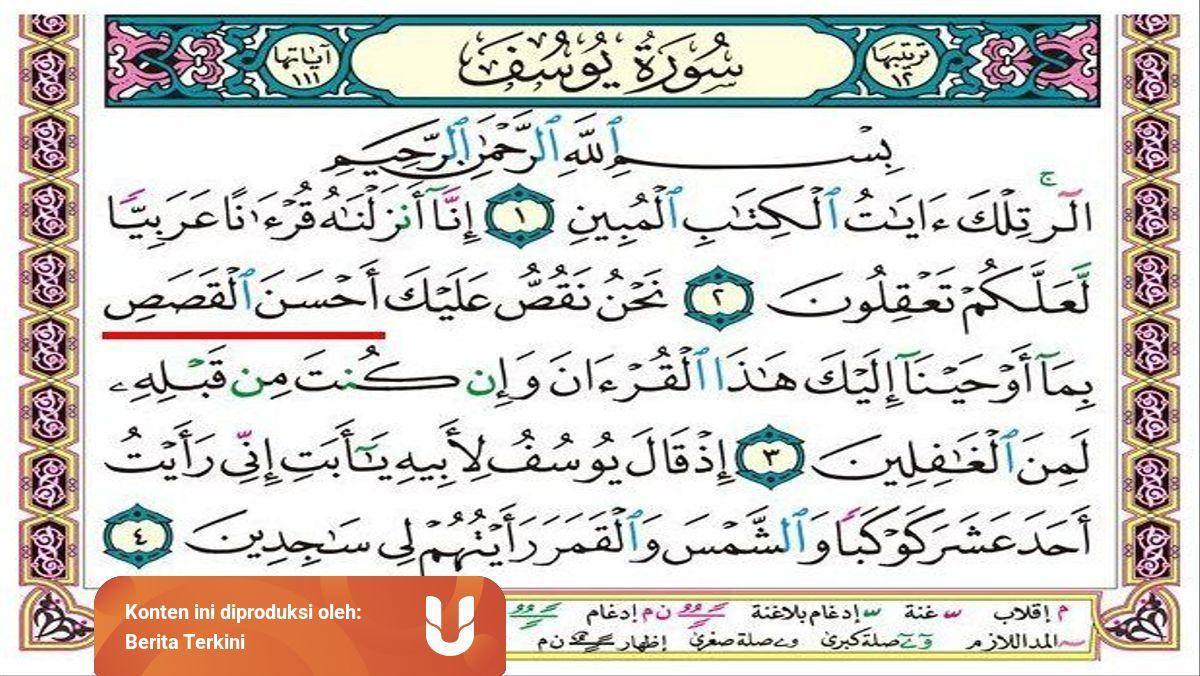 ترتيبها
١٢
سُورَةُ يُوسُفَ
آياتها
١١١
بِسْمِ ٱللَّهِ ٱلرَّحْمَٰنِ ٱلرَّحِيمِ
الٓر ۚ تِلْكَ ءَايَٰتُ ٱلْكِتَٰبِ ٱلْمُبِينِ ١ إِنَّآ أَنزَلْنَٰهُ قُرْءَٰنًا عَرَبِيًّا
لَّعَلَّكُمْ تَعْقِلُونَ ٢ نَحْنُ نَقُصُّ عَلَيْكَ أَحْسَنَ ٱلْقَصَصِ
بِمَآ أَوْحَيْنَآ إِلَيْكَ هَٰذَا ٱلْقُرْءَانَ وَإِن كُنتَ مِن قَبْلِهِۦ
لَمِنَ ٱلْغَٰفِلِينَ ٣ إِذْ قَالَ يُوسُفُ لِأَبِيهِ يَٰٓأَبَتِ إِنِّى رَأَيْتُ
أَحَدَ عَشَرَ كَوْكَبًا وَٱلشَّمْسَ وَٱلْقَمَرَ رَأَيْتُهُمْ لِى سَٰجِدِينَ ٤
م إقلاب غنة إدغام بلاغنة ن م إدغام
المد اللازم صلة كبرى صلة صغرى إظهار ن م
Konten ini diproduksi oleh:
Berita Terkini